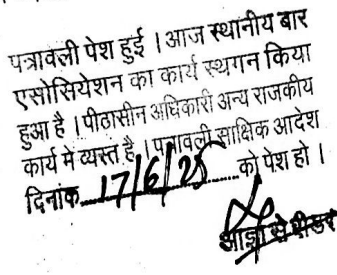 पत्रावली पेश हुई । आज स्थानीय बार
एसोसियेशन का कार्य स्थगन किया
हुआ है । पीठासीन अधिकारी अन्य राजकीय
कार्य मे व्यस्त है । पत्रावली साक्षिक आदेश
दिनांक 17/6/25 को पेश हो ।
आज्ञा से रीडर